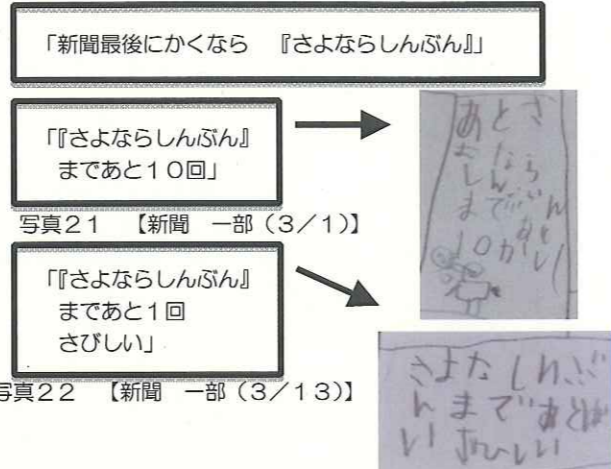 「新聞最後にかくなら　『さよならしんぶん』」
「『さよならしんぶん』
まであと１０回」
写真２１　【新聞　一部（３／１）】
「『さよならしんぶん』
まであと１回
さびしい」
写真２２　【新聞　一部（３／１３）】
まで
１０かい
さよなしんぶ
んまであと
い さびしい